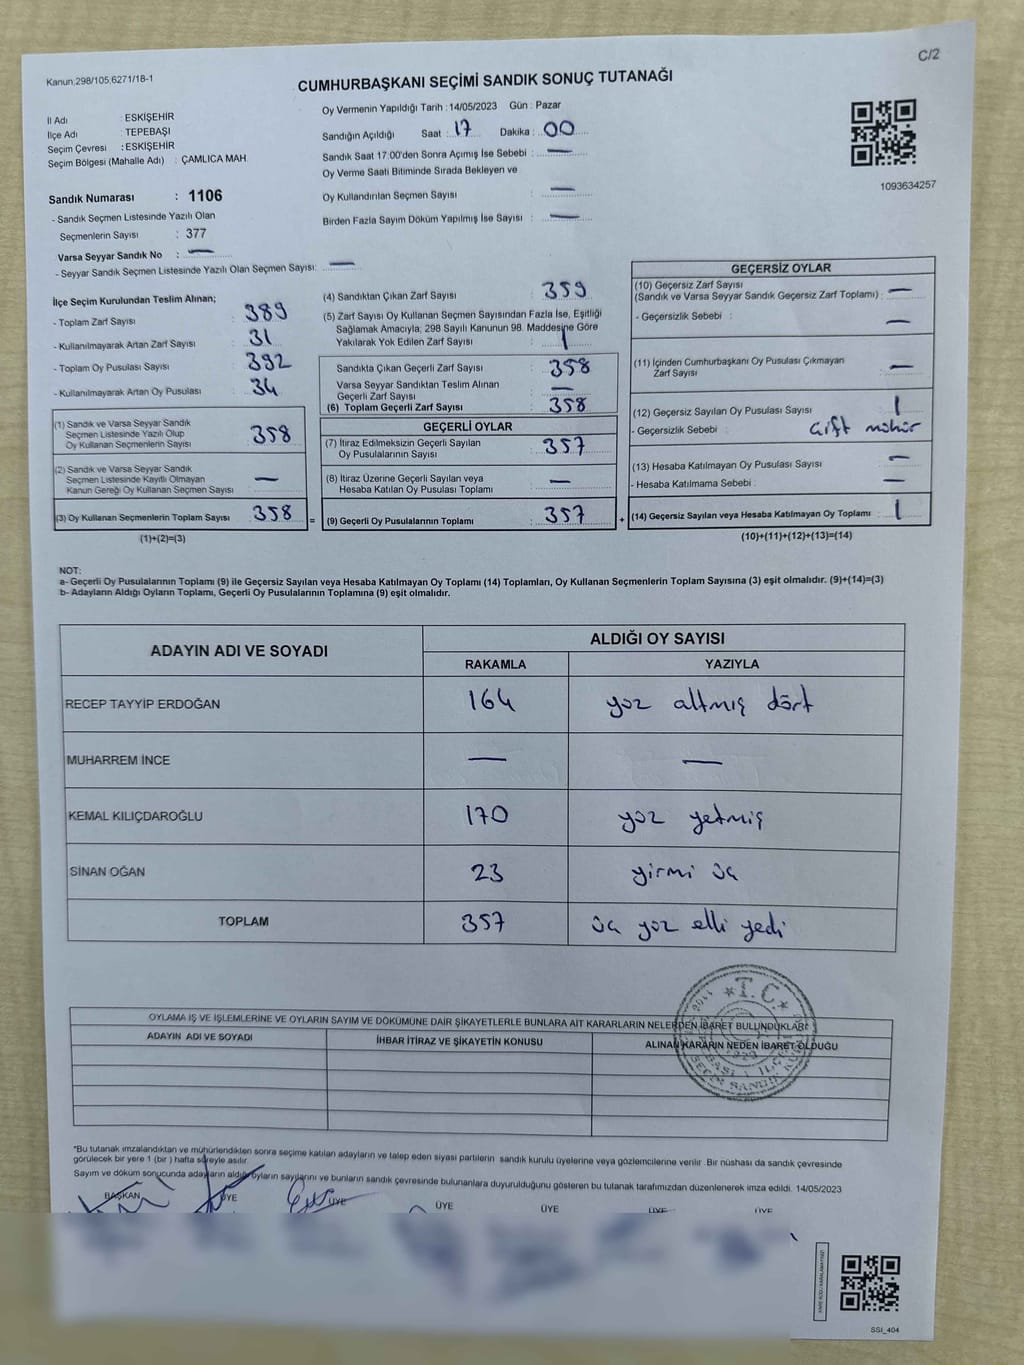 C/2
Kanun:298/105,6271/18-1
CUMHURBAŞKANI SEÇİMİ SANDIK SONUÇ TUTANAĞI
İl Adı : ESKİŞEHİR
İlçe Adı : TEPEBAŞI
Seçim Çevresi : ESKİŞEHİR
Seçim Bölgesi (Mahalle Adı) : ÇAMLICA MAH.
Sandık Numarası : 1106
- Sandık Seçmen Listesinde Yazılı Olan
Seçmenlerin Sayısı : 377
Varsa Seyyar Sandık No : —
- Seyyar Sandık Seçmen Listesinde Yazılı Olan Seçmen Sayısı: —
Oy Vermenin Yapıldığı Tarih : 14/05/2023 Gün : Pazar
Sandığın Açıldığı Saat : 17 Dakika : 00
Sandık Saat 17:00'den Sonra Açımış İse Sebebi : —
Oy Verme Saati Bitiminde Sırada Bekleyen ve
Oy Kullandırılan Seçmen Sayısı : —
Birden Fazla Sayım Döküm Yapılmış İse Sayısı : —
1093634257
İlçe Seçim Kurulundan Teslim Alınan;
- Toplam Zarf Sayısı : 389
- Kullanılmayarak Artan Zarf Sayısı : 31
- Toplam Oy Pusulası Sayısı : 392
- Kullanılmayarak Artan Oy Pusulası : 34
(1) Sandık ve Varsa Seyyar Sandık
Seçmen Listesinde Yazılı Olup
Oy Kullanan Seçmenlerin Sayısı : 358
(2) Sandık ve Varsa Seyyar Sandık
Seçmen Listesinde Kayıtlı Olmayan
Kanun Gereği Oy Kullanan Seçmen Sayısı : —
(3) Oy Kullanan Seçmenlerin Toplam Sayısı : 358
(1)+(2)=(3)
(4) Sandıktan Çıkan Zarf Sayısı : 359
(5) Zarf Sayısı Oy Kullanan Seçmen Sayısından Fazla İse, Eşitliği
Sağlamak Amacıyla; 298 Sayılı Kanunun 98. Maddesine Göre
Yakılarak Yok Edilen Zarf Sayısı : 1
Sandıkta Çıkan Geçerli Zarf Sayısı : 358
Varsa Seyyar Sandıktan Teslim Alınan
Geçerli Zarf Sayısı : —
(6) Toplam Geçerli Zarf Sayısı : 358
GEÇERLİ OYLAR
(7) İtiraz Edilmeksizin Geçerli Sayılan
Oy Pusulalarının Sayısı : 357
(8) İtiraz Üzerine Geçerli Sayılan veya
Hesaba Katılan Oy Pusulası Toplamı : —
= (9) Geçerli Oy Pusulalarının Toplamı : 357
GEÇERSİZ OYLAR
(10) Geçersiz Zarf Sayısı
(Sandık ve Varsa Seyyar Sandık Geçersiz Zarf Toplamı) : —
- Geçersizlik Sebebi : —
(11) İçinden Cumhurbaşkanı Oy Pusulası Çıkmayan
Zarf Sayısı : —
(12) Geçersiz Sayılan Oy Pusulası Sayısı : 1
- Geçersizlik Sebebi : Çift mühür
(13) Hesaba Katılmayan Oy Pusulası Sayısı : —
- Hesaba Katılmama Sebebi : —
+ (14) Geçersiz Sayılan veya Hesaba Katılmayan Oy Toplamı : 1
(10)+(11)+(12)+(13)=(14)
NOT:
a- Geçerli Oy Pusulalarının Toplamı (9) ile Geçersiz Sayılan veya Hesaba Katılmayan Oy Toplamı (14) Toplamları, Oy Kullanan Seçmenlerin Toplam Sayısına (3) eşit olmalıdır. (9)+(14)=(3)
b- Adayların Aldığı Oyların Toplamı, Geçerli Oy Pusulalarının Toplamına (9) eşit olmalıdır.
ADAYIN ADI VE SOYADI ALDIĞI OY SAYISI
RAKAMLA YAZIYLA
RECEP TAYYİP ERDOĞAN 164 yüz altmış dört
MUHARREM İNCE — —
KEMAL KILIÇDAROĞLU 170 yüz yetmiş
SİNAN OĞAN 23 yirmi üç
TOPLAM 357 üç yüz elli yedi
T.C
OYLAMA İŞ VE İŞLEMLERİNE VE OYLARIN SAYIM VE DÖKÜMÜNE DAİR ŞİKAYETLERLE BUNLARA AİT KARARLARIN NELERDEN İBARET BULUNDUKLARI
ADAYIN ADI VE SOYADI İHBAR İTİRAZ VE ŞİKAYETİN KONUSU ALINAN KARARIN NEDEN İBARET OLDUĞU
*Bu tutanak imzalandıktan ve mühürlendikten sonra seçime katılan adayların ve talep eden siyasi partilerin sandık kurulu üyelerine veya gözlemcilerine verilir. Bir nüshası da sandık çevresinde
görülecek bir yere 1 (bir) hafta süreyle asılır.
Sayım ve döküm sonucunda adayların aldığı oyların sayılarını ve bunların sandık çevresinde bulunanlara duyurulduğunu gösteren bu tutanak tarafımızdan düzenlenerek imza edildi. 14/05/2023
BAŞKAN ÜYE ÜYE ÜYE ÜYE ÜYE ÜYE
SSI_404